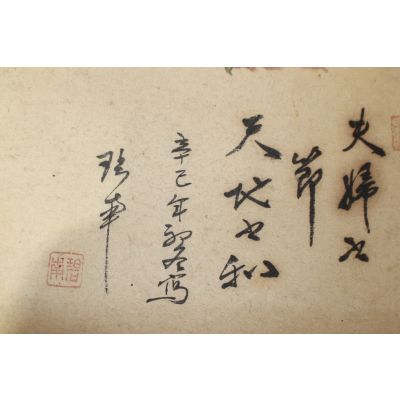 夫婦之
節
天地之和
辛巳年初冬寫